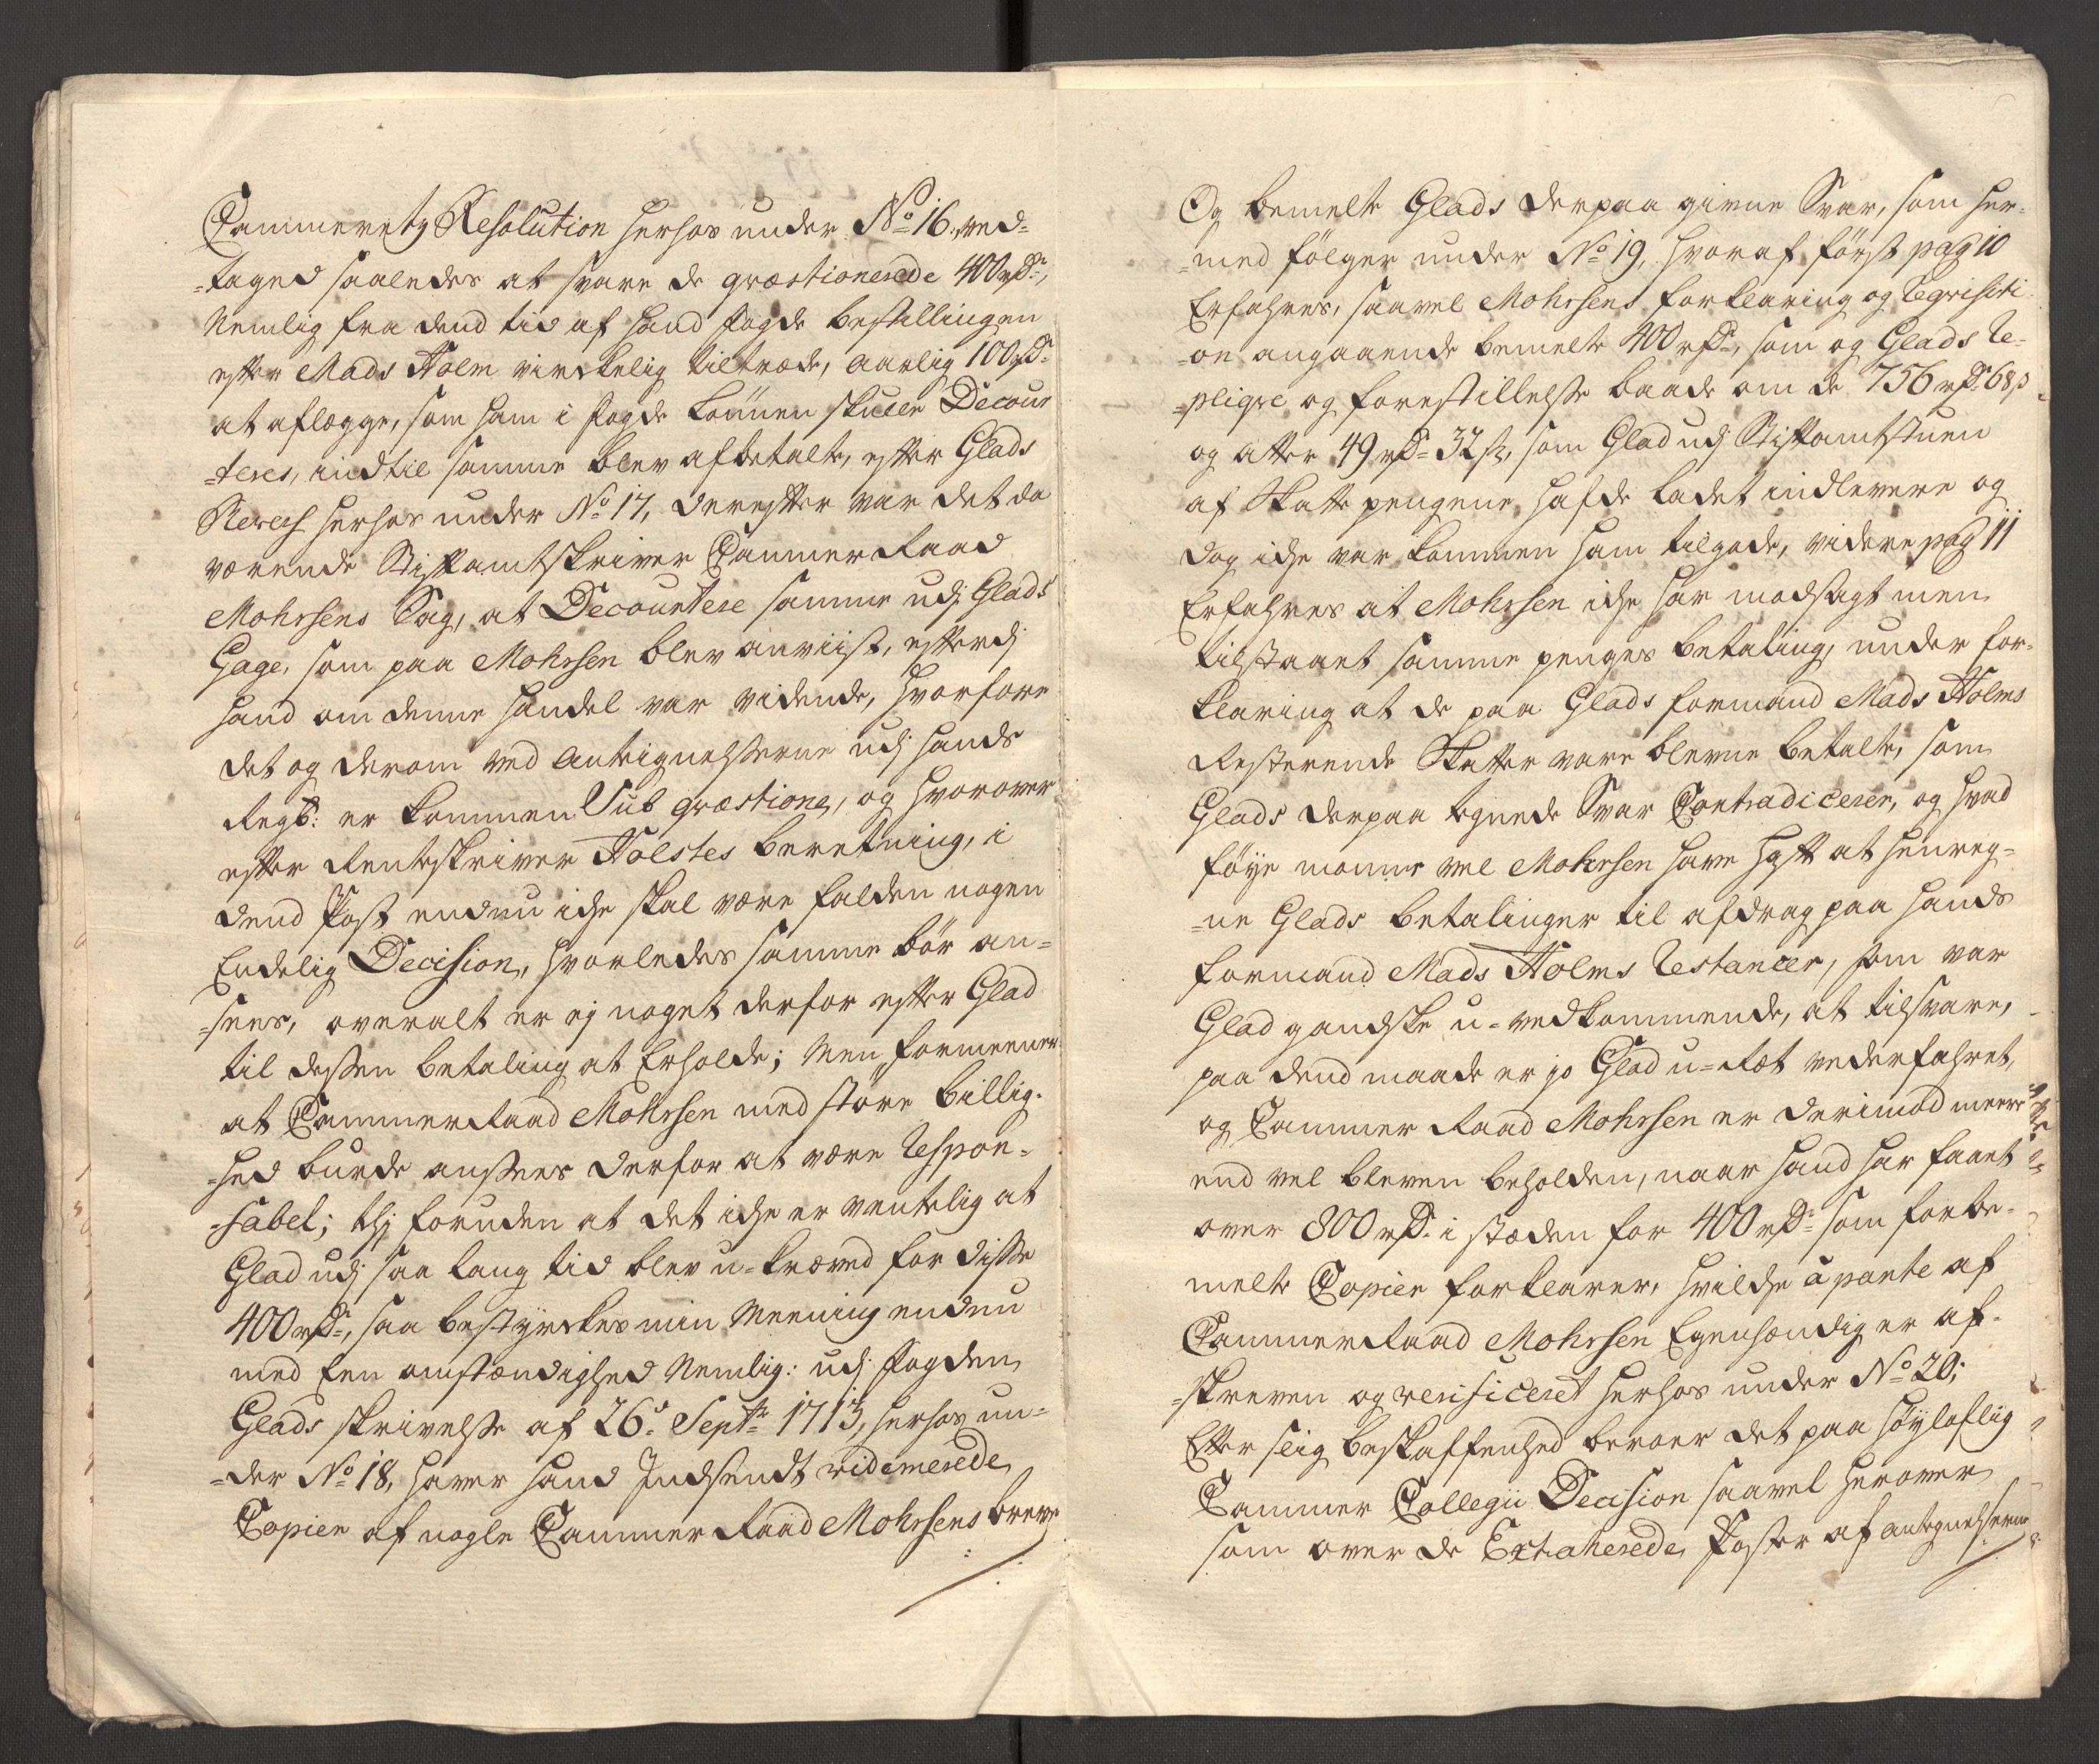 Cammerets Resolution herhos under No 16, ved-
-taged saaledes at svare de qvæstionerede 400 rdr,
Nemlig fra dend tid af hand fogde bestillingen
efter Mads Holm virckelig tiltræde, aarlig 100 rdr
at aflægge, som ham i fogde Lönnen skulle Decour
-teres, indtil samme blev afbetalt, efter Glads
Revers herhos under No 17, derefter var det da
værende Stiftamtskriver Cammer Raad
Mohrsens Sag, at Decourtere samme udj Glads
Gage, som paa Mohrsen blev anviist, efterdj
hand om denne handel var vidende, hvorfore
det og derom ved Antegnelsserne udj hands
Regsk: er kommen Sub qvæstione, og hvorover
efter Renteskriver Holstes beretning, i
dend Post endnu iche skal være falden nogen
Endelig Decision, hvorledes samme bör an-
-sees, overalt er ej noget derfor efter Glad
til dessen betaling at Erholde; Men formeener
at Cammer Raad Mohrsen med större billig-
-hed burde ansees derfor at være Respon-
-sabel; thj foruden at det iche er ventelig at
Glad udj saa lang tid blev u-kræved for disse
400 rdr, saa bestyrckes min Meening endnu
med Een omstændighed Nemlig: udj fogden
Glads skrivelsse af 26d Septr 1713, herhos un-
-der No 18, haver hand Indsendt videmerede
Copier af nogle Cammer Raad Mohrsens breve
Og bemelte Glads derpaa givne Svar, som her-
-med fölger under No 19, hvoraf först pag 10
Erfahres, saavel Mohrsens forklaring og Reqvisiti-
-on angaaende bemelte 400 rdr, som og Glads Re-
-pliqve og forestillelsse baade om de 756 rdr 68 s
og atter 49 rdr 32 s, som Glad udj Stiftamtstuen
af Skatte pengene, hafde ladet indlevere og
dog iche var kommen ham tilgode, videre pag 11
Erfahres at Mohrsen iche har modsagt men
tilstaaet samme penges betaling, under for-
klaring at de paa Glads formand Mads Holms
Resterende Skatter vare blevne betalte, som
Glads derpaa tegnede Svar Contradicerer, og hvad
föye monne vel Mohrsen have hafft at henreg-
-ne Glads betalinger til afdrag paa hands
formand Mads Holms Restancer, som var
Glad gandske u-vedkommende, at tilsvare,
paa dend maade er jo Glad u-Ræt vederfahret,
og Cammer Raad Mohrsen er derimod meere
end vel bleven beholden, naar hand har faaet
over 800 rdr i stæden for 400 rdr som forbe-
melte Copier forklarer, hvilche à parte af
Cammer Raad Mohrsen Egenhændig er af-
-skreven og verificeret herhos under No 20;
Efter slig beskaffenhed beroer det paa höylofflig
Cammer Collegii Decision saavel herover
som over de Extraherede Poster af antegnelserne